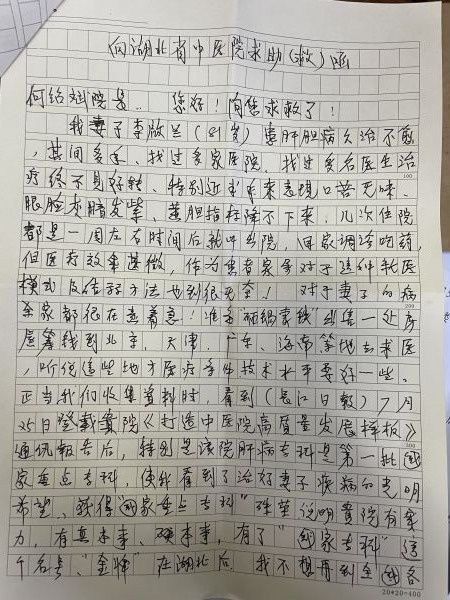 向湖北省中医院求助(救)函
何绍斌院长: 您好!向您求救了!
我妻子李 兰(81岁)患肝胆病久治不愈
,其间多年、找过多家医院、找过多名医生治
疗终不见好转、特别近 年来表现口苦无味、
眼脸灰暗发紫、黄胆指标降不下来、几次住院
都是一周左右时间后就叫出院,回家调冶吃药,
100
但医疗效率甚微,作为患者家争对于这种就医
模式及 方法也到很无奈! 对于妻子的病
200
全家都很在意着急!准备砸锅卖铁"出售一处房
屋筹钱到北京、天津、广东、海南等地去求医
,听说这些地方医疗条件技术水平要好一些。
正当我们收集资料时,看到《长江日报》7月
25日登载贵院《打造中医院高质量发展样板》
300
通讯报告后,特别是该院肝病专科是第一批国
家重点专科,使我看到了治好妻子疾病的光明
希望、获得"国家重点专科"殊荣说明贵院有实
力,有真本事、硬本事,有了"国家专科"这
个名号、"金牌"在湖北后,我不想再到全国各
20*20=400